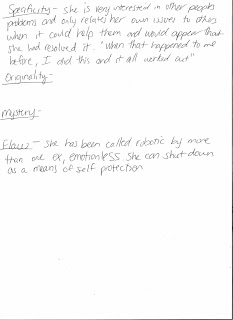 Specificity - she is very interested in other peoples
problems and only relates her own issues to others
when it could help them and would appear that
she had resolved it. "When that happened to me
before, I did this and it all worked out"
Originality:-

Mystery:-

Flaws - she has been called robotic by more
than one ex, emotionless. She can shut down
as a means of self protection